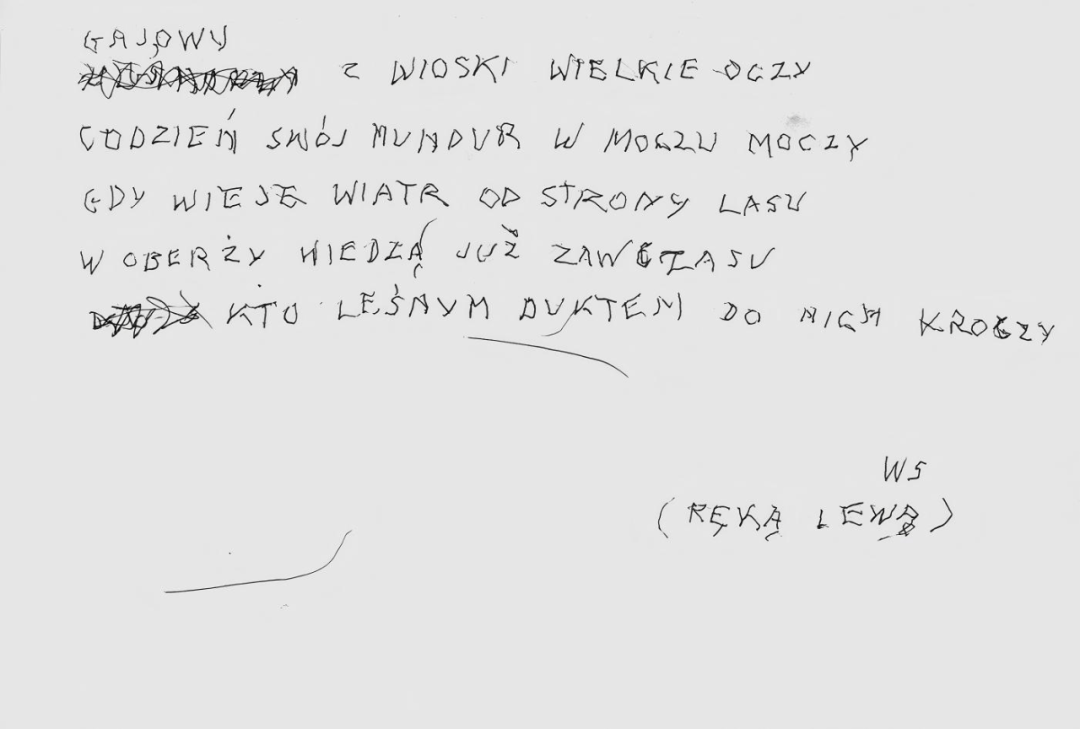 GAJOWY
Z WIOSKI WIELKIE OCZY
CODZIEŃ SWÓJ MUNDUR W MOCZU MOCZY
GDY WIEJE WIATR OD STRONY LASU
W OBERŻY WIEDZĄ JUŻ ZAWCZASU
KTO LEŚNYM DUKTEM DO NICH KROCZY
WS
(RĘKĄ LEWĄ)